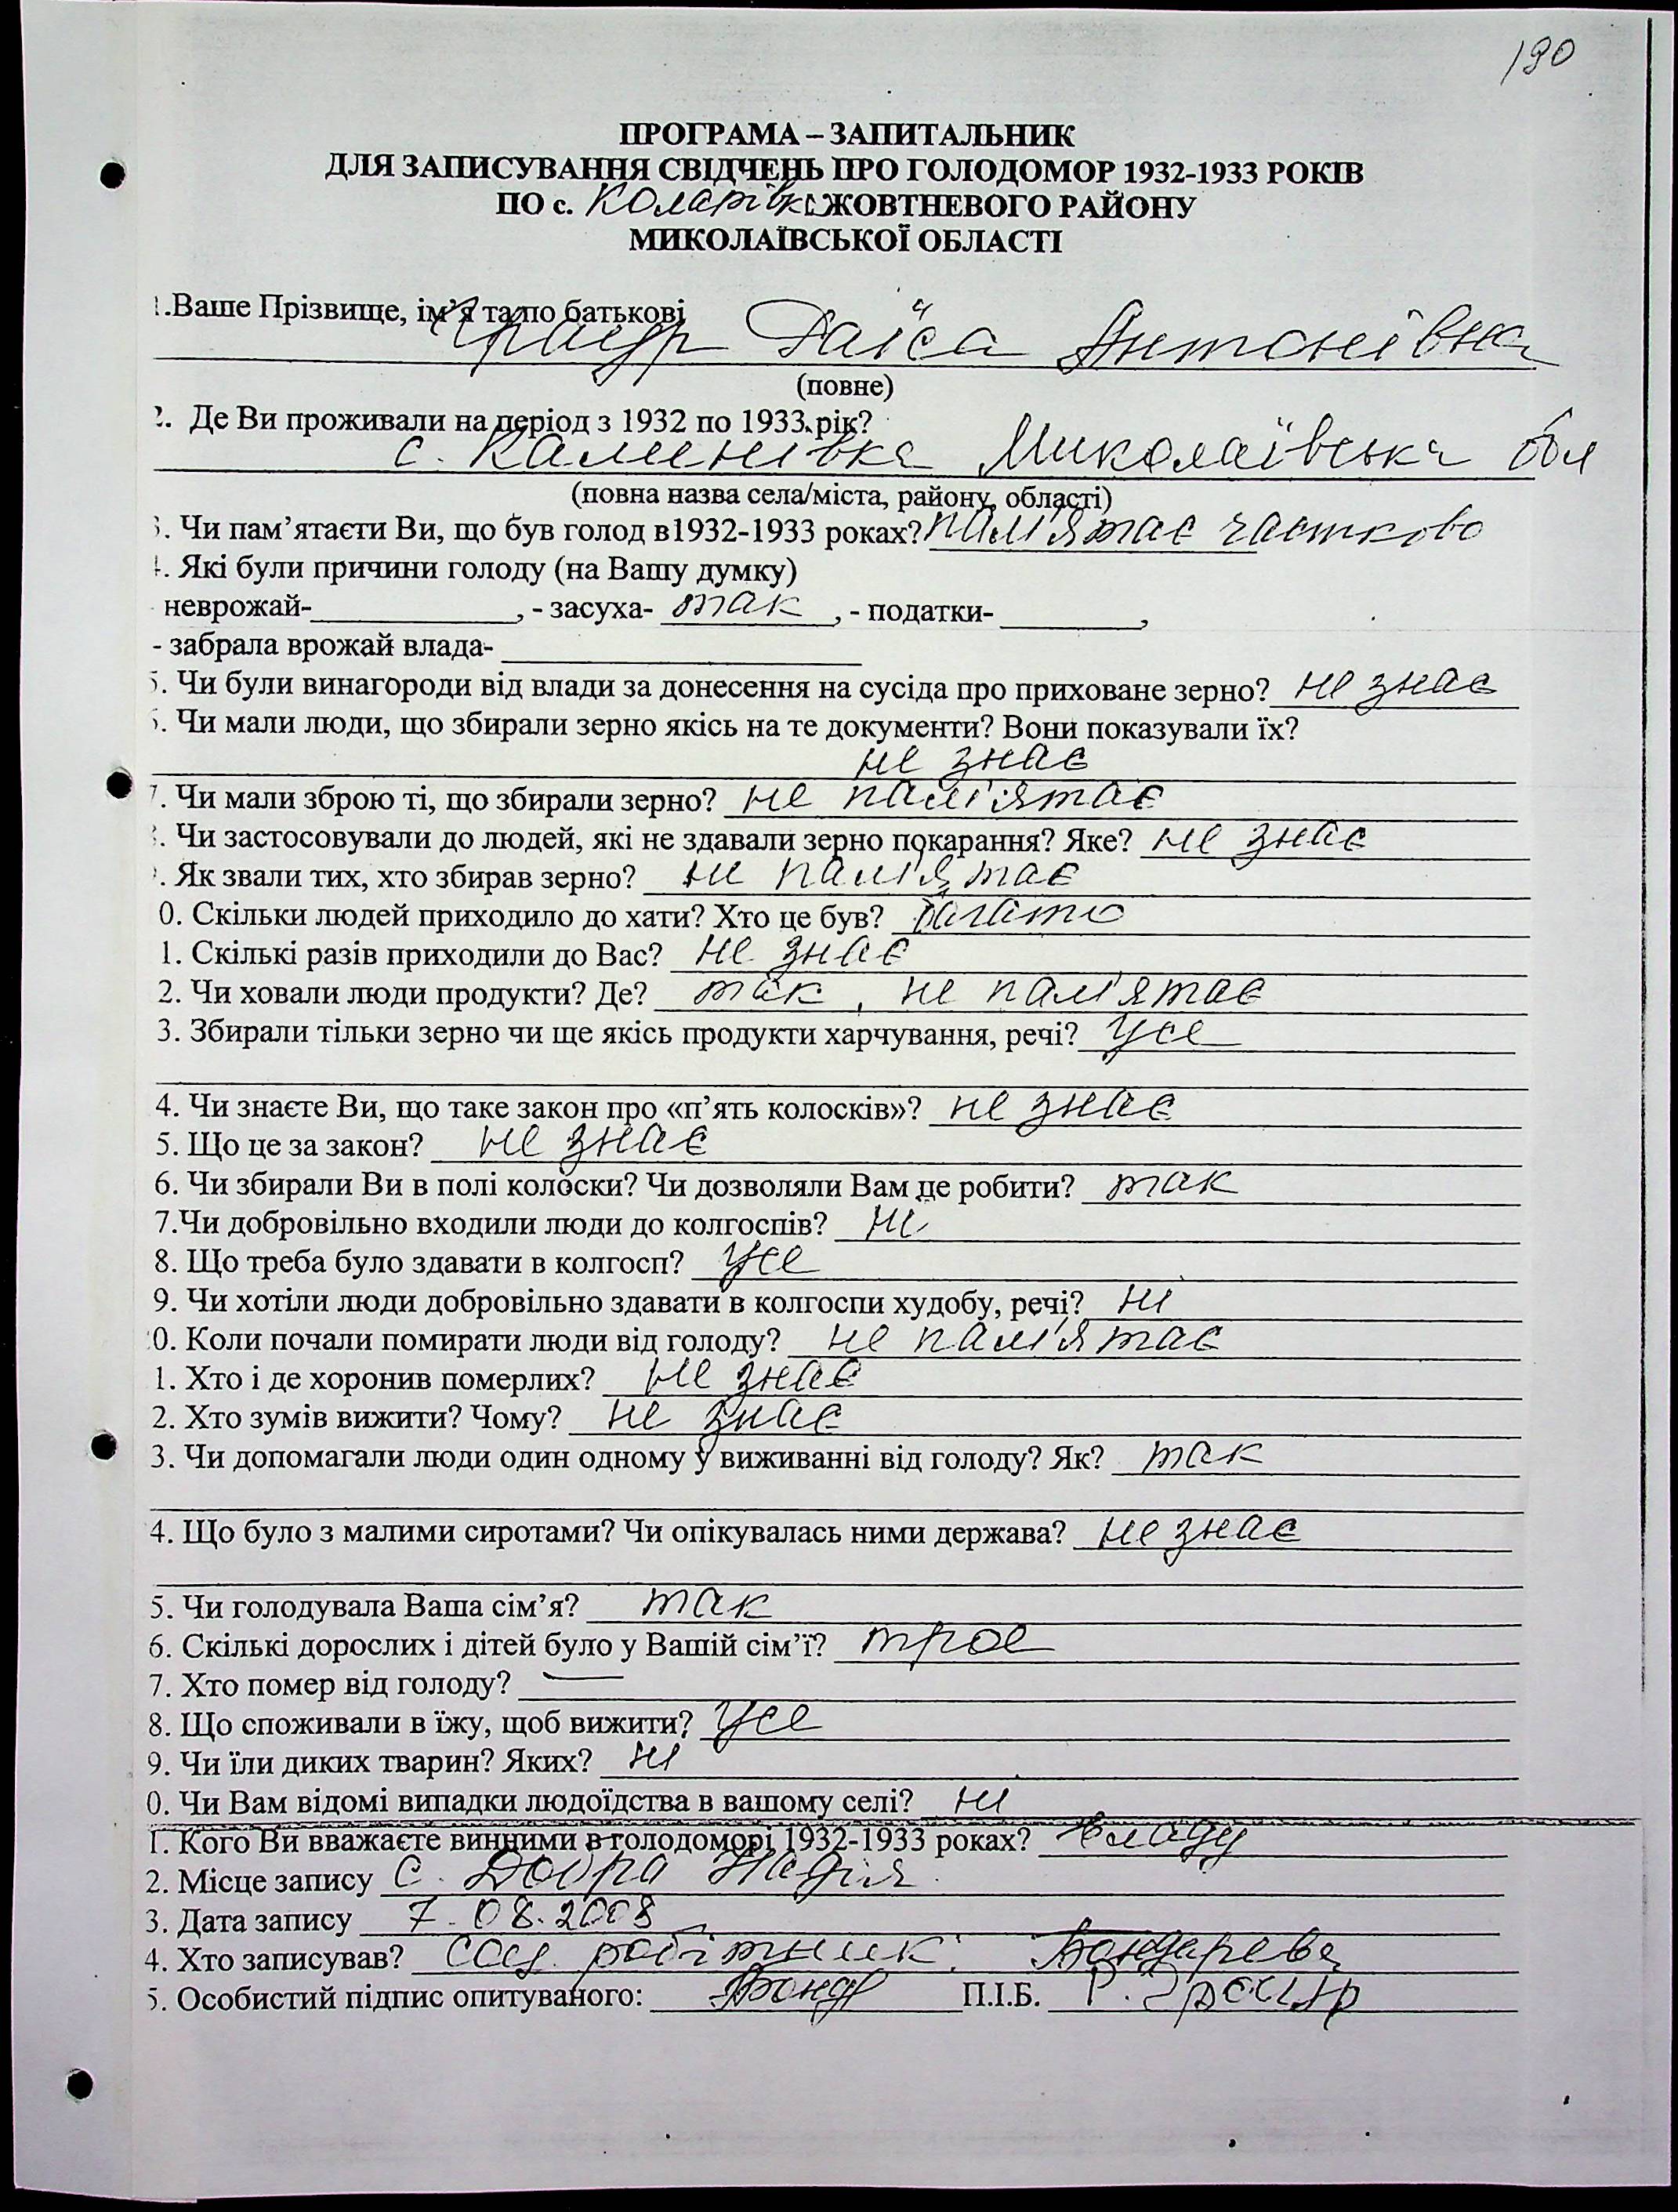 190
ПРОГРАМА – ЗАПИТАЛЬНИК
ДЛЯ ЗАПИСУВАННЯ СВІДЧЕНЬ ПРО ГОЛОДОМОР 1932-1933 РОКІВ
ПО с. Коларівка ЖОВТНЕВОГО РАЙОНУ
МИКОЛАЇВСЬКОЇ ОБЛАСТІ
1.Ваше Прізвище, ім’я та по батькові
Раїса Антонівна
(повне)
2. Де Ви проживали на період з 1932 по 1933 рік?
с. Калинівка Миколаївська обл
(повна назва села/міста, району, області)
3. Чи пам’ятаєти Ви, що був голод в1932-1933 роках? пам'ятає частково
4. Які були причини голоду (на Вашу думку)
неврожай- , - засуха- так , - податки- ,
- забрала врожай влада-
5. Чи були винагороди від влади за донесення на сусіда про приховане зерно? не знає
6. Чи мали люди, що збирали зерно якісь на те документи? Вони показували їх?
не знає
7. Чи мали зброю ті, що збирали зерно? не пам'ятає
8. Чи застосовували до людей, які не здавали зерно покарання? Яке? не знає
. Як звали тих, хто збирав зерно? не пам'ятає
0. Скільки людей приходило до хати? Хто це був? багато
1. Скількі разів приходили до Вас? не знає
2. Чи ховали люди продукти? Де? так, не пам'ятає
3. Збирали тільки зерно чи ще якісь продукти харчування, речі? усе
4. Чи знаєте Ви, що таке закон про «п’ять колосків»? не знає
5. Що це за закон? не знає
6. Чи збирали Ви в полі колоски? Чи дозволяли Вам це робити? так
7.Чи добровільно входили люди до колгоспів? ні
8. Що треба було здавати в колгосп? усе
9. Чи хотіли люди добровільно здавати в колгоспи худобу, речі? ні
0. Коли почали помирати люди від голоду? не пам'ятає
1. Хто і де хоронив померлих? не знає
2. Хто зумів вижити? Чому? не знає
3. Чи допомагали люди один одному у виживанні від голоду? Як? так
4. Що було з малими сиротами? Чи опікувалась ними держава? не знає
5. Чи голодувала Ваша сім’я? так
6. Скількі дорослих і дітей було у Вашій сім’ї? троє
7. Хто помер від голоду? —
8. Що споживали в їжу, щоб вижити? усе
9. Чи їли диких тварин? Яких? ні
0. Чи Вам відомі випадки людоїдства в вашому селі? ні
1. Кого Ви вважаєте винними в голодоморі 1932-1933 роках? владу
2. Місце запису с. Добра Надія
3. Дата запису 7.08.2008
4. Хто записував? соц. робітник Бондарева
5. Особистий підпис опитуваного: Бонд П.І.Б. Р.